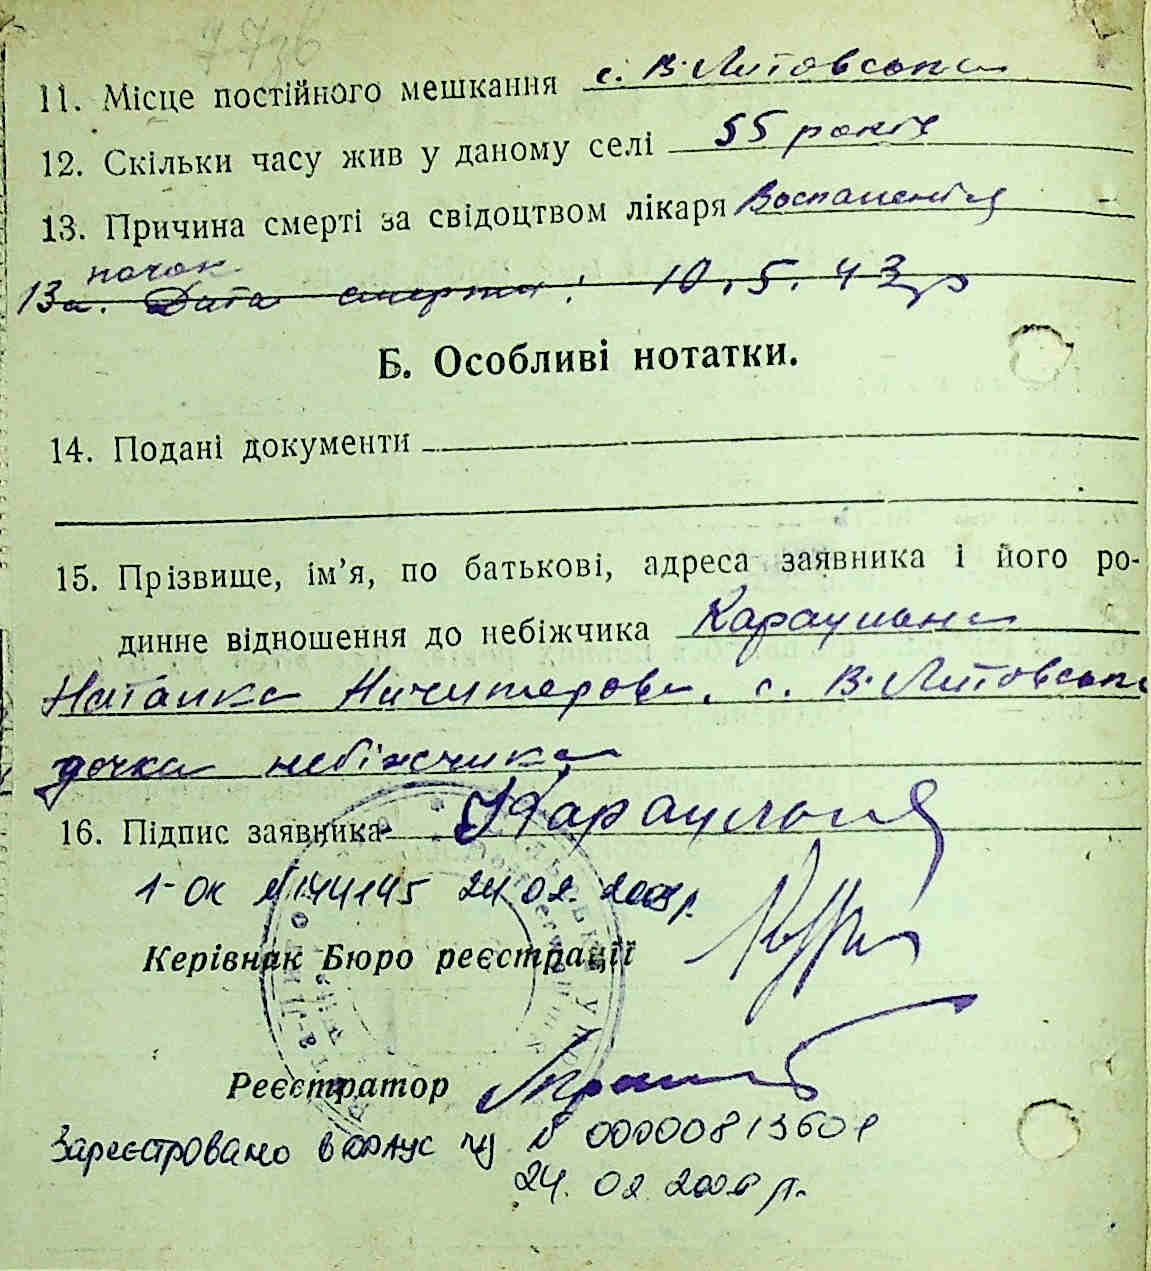 77зв
11. Місце постійного мешкання с. В-Литовськи
12. Скільки часу жив у даному селі 55 років
13. Причина смерті за свідоцтвом лікаря Воспаленія
почок.
13а. Дата смерти: 10.5.43 р
Б. Особливі нотатки.
14. Подані документи
15. Прізвище, ім’я, по батькові, адреса заявника і його ро-
динне відношення до небіжчика Караульна
Наталка Ничипорова, с. В-Литовськи
дочка небіжчика
16. Підпис заявника Караульна
1-ОК №144145 24.02. р.
Керівник Бюро реєстрації
Реєстратор
Зареєстровано в № 00000813601
24. 02 р.